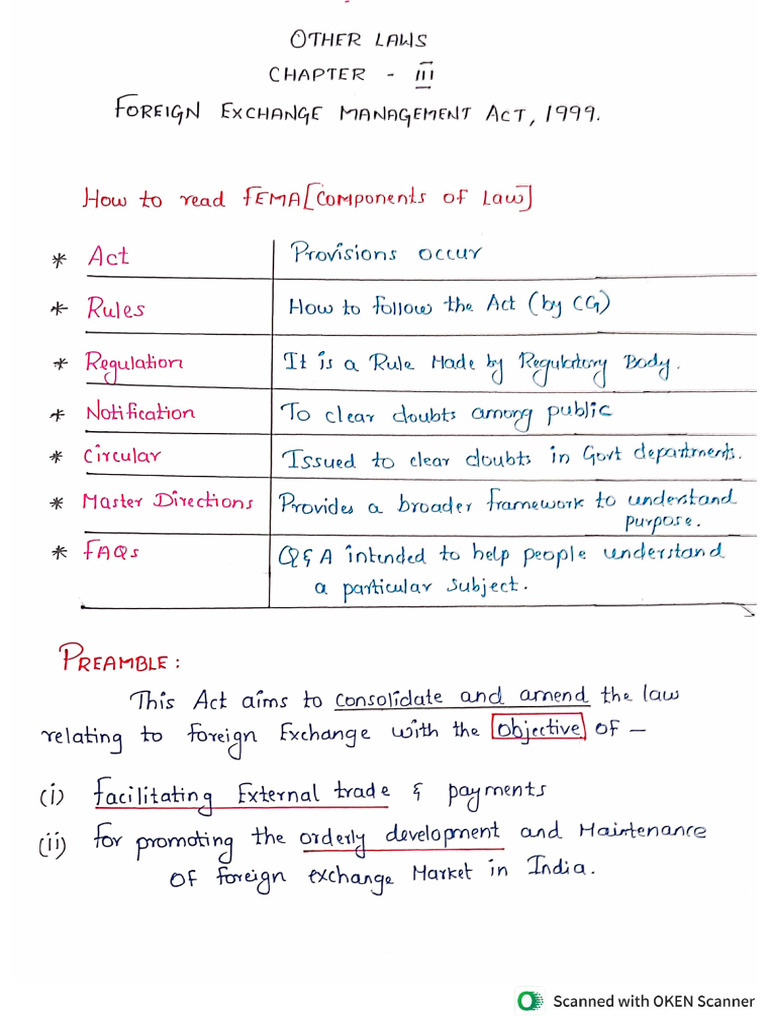 OTHER LAWS
CHAPTER - III
FOREIGN EXCHANGE MANAGEMENT ACT, 1999.
How to read FEMA [Components of Law]
* Act Provisions occur
* Rules How to follow the Act (by CG)
* Regulation It is a Rule Made by Regulatory Body.
* Notification To clear doubts among public
* Circular Issued to clear doubts in Govt departments.
* Master Directions Provides a broader framework to understand
purpose.
* FAQs Q & A intended to help people understand
a particular subject.
PREAMBLE:
This Act aims to consolidate and amend the law
relating to foreign Exchange with the objective of –
(i) facilitating External trade & payments
(ii) for promoting the orderly development and Maintenance
of foreign exchange Market in India.
Scanned with OKEN Scanner